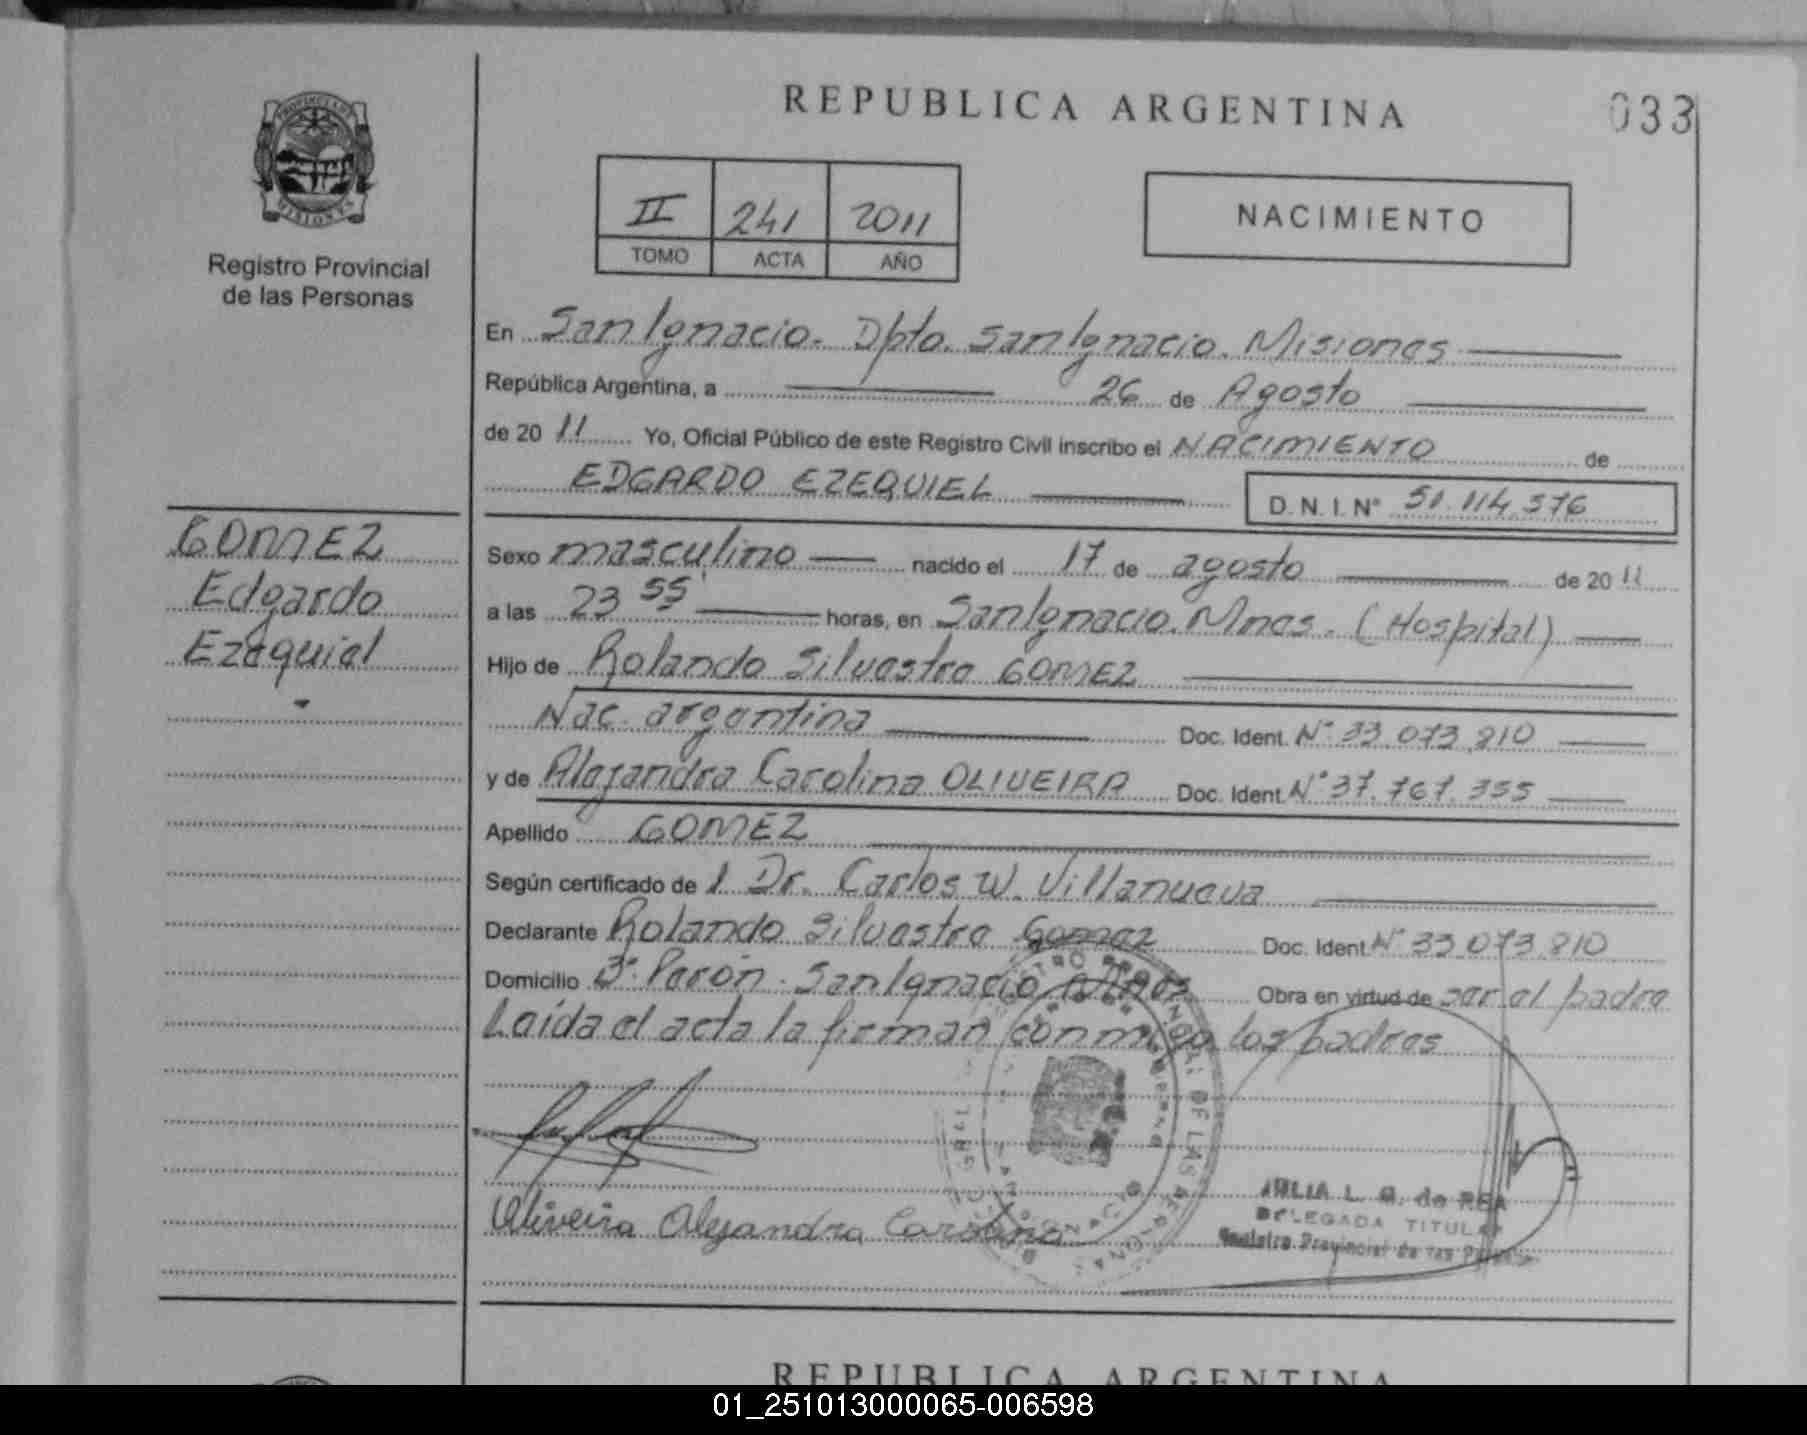 REPUBLICA ARGENTINA
033
PROVINCIA DE MISIONES
Registro Provincial
de las Personas
II 241 2011
TOMO ACTA AÑO
NACIMIENTO
En San Ignacio. Dpto. San Ignacio. Misiones
República Argentina, a 26 de Agosto
de 20 11 Yo, Oficial Público de este Registro Civil inscribo el NACIMIENTO de
EDGARDO EZEQUIEL D. N. I. N° 51.114.376
GOMEZ
Edgardo
Ezequiel
Sexo masculino nacido el 17 de agosto de 20 11
a las 23 55' horas, en San Ignacio. Mnes. (Hospital)
Hijo de Rolando Silvestre GOMEZ
Nac. argentina Doc. Ident. N° 33.073.810
y de Alejandra Carolina OLIVEIRA Doc. Ident. N° 37.767.355
Apellido GOMEZ
Según certificado de 1 Dr. Carlos W. Villanueva
Declarante Rolando Silvestre Gomez Doc. Ident. N° 33.073.810
Domicilio B° Perón. San Ignacio Mnes Obra en virtud de ser el padre
Leída el acta la firman conmigo los padres
Oliveira Alejandra Carolina
JULIA L. G. de REA
DELEGADA TITULAR
Registro Provincial de las Personas
REPUBLICA ARGENTINA
01_251013000065-006598